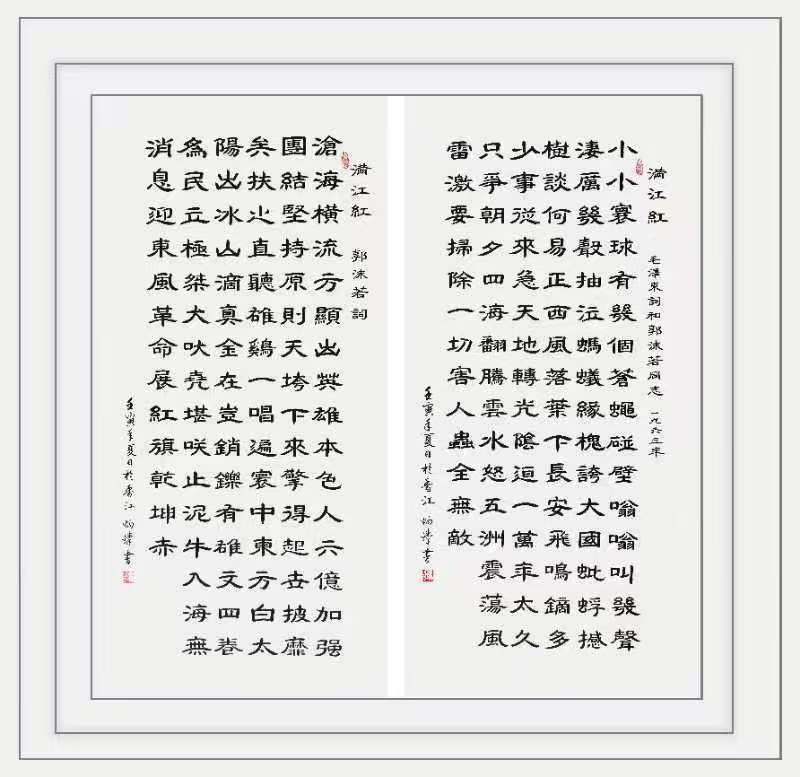 满江紅 毛澤東詞和郭沫若同志 一九六三年
小小寰球有幾個蒼蠅碰壁嗡嗡叫幾聲
淒厲幾聲抽泣螞蟻緣槐誇大國蚍蜉撼
樹談何易正西風落葉下長安飛鳴鏑多
少事從來急天地轉光陰迫一萬年太久
只爭朝夕四海翻騰雲水怒五洲震蕩風
雷激要掃除一切害人蟲全無敵
壬寅年夏日於香江 書
满江紅 郭沫若詞
滄海橫流方顯出英雄本色人六億加强
團結堅持原則天垮下來擎得起世披靡
矣扶之直聽雄鷄一唱遍寰中東方白太
陽出冰山滴真金在豈銷鑠有雄文四卷
為民立極桀犬吠堯堪咲止泥牛入海無
消息迎東風革命展紅旗乾坤赤
壬寅年夏日於香江 書